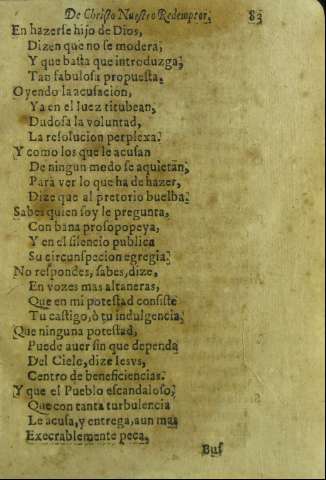 De Christo Nuestro Redemptor, 83
En hazerse hijo de Dios,
Dizen que no se modera;
Y que basta que introduzga;
Tan fabulosa propuesta.
Oyendo la acusacion,
Ya en el Iuez titubean,
Dudosa la voluntad,
La resolucion perplexa.
Y como los que le acusan
De ningun modo se aquietan;
Para ver lo que ha de hazer,
Dize que al pretorio buelba;
Sabes quien soy le pregunta,
Con bana prosopopeya,
Y en el silencio publica
Su circunspecion egregia;
No respondes, sabes, dize,
En vozes mas altaneras,
Que en mi potestad consiste
Tu castigo, ò tu indulgencia;
Que ninguna potestad,
Puede auer sin que dependa
Del Cielo, dize Iesvs,
Centro de beneficiencias.
Y que el Pueblo escandaloso;
Que con tanta turbulencia
Le acusa, y entrega, aun mas
Execrablemente peca.
Bus